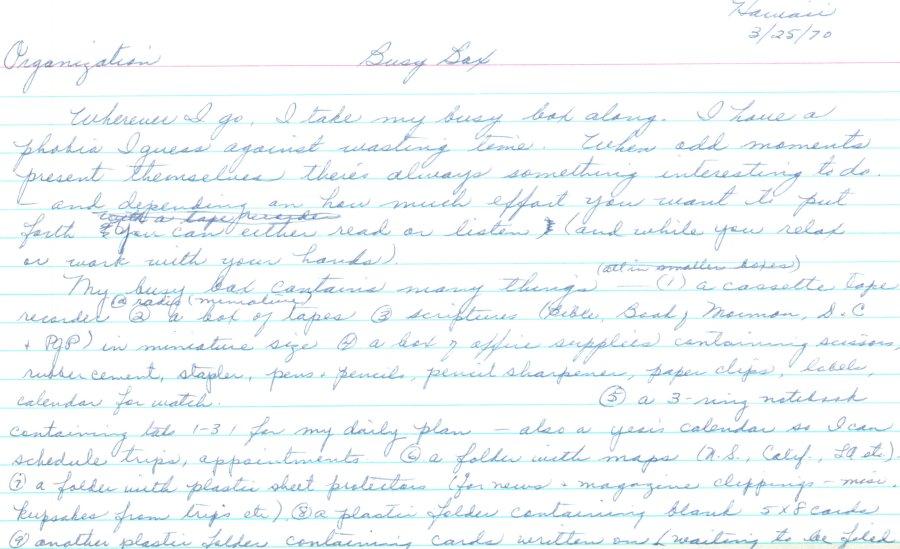 Hawaii
3/25/70
Organization Busy Box
Wherever I go, I take my busy box along. I have a
phobia I guess against wasting time. When odd moments
present themselves there's always something interesting to do.
— and depending on how much effort you want to put
with a tape recorder
forth you can either read or listen (and while you relax
or work with your hands).
(all in smaller boxes)
My busy box contains many things — (1) a cassette tape
@ radio (miniature)
recorder ② a box of tapes ③ scriptures (Bible, Book of Mormon, D.C
+ PGP) in miniature size ④ a box of office supplies containing scissors,
rubber cement, stapler, pens + pencils, pencil sharpener, paper clips, labels,
calendar for watch. ⑤ a 3-ring notebook
containing tabs 1-31 for my daily plan — also a year's calendar so I can
schedule trips, appointments ⑥ a folder with maps (N.S., Calif., LA etc.)
⑦ a folder with plastic sheet protectors (for news + magazine clippings - misc.
keepsakes from trips etc) ⑧ a plastic folder containing blank 5x8 cards
⑨ another plastic folder containing cards written on (waiting to be filed